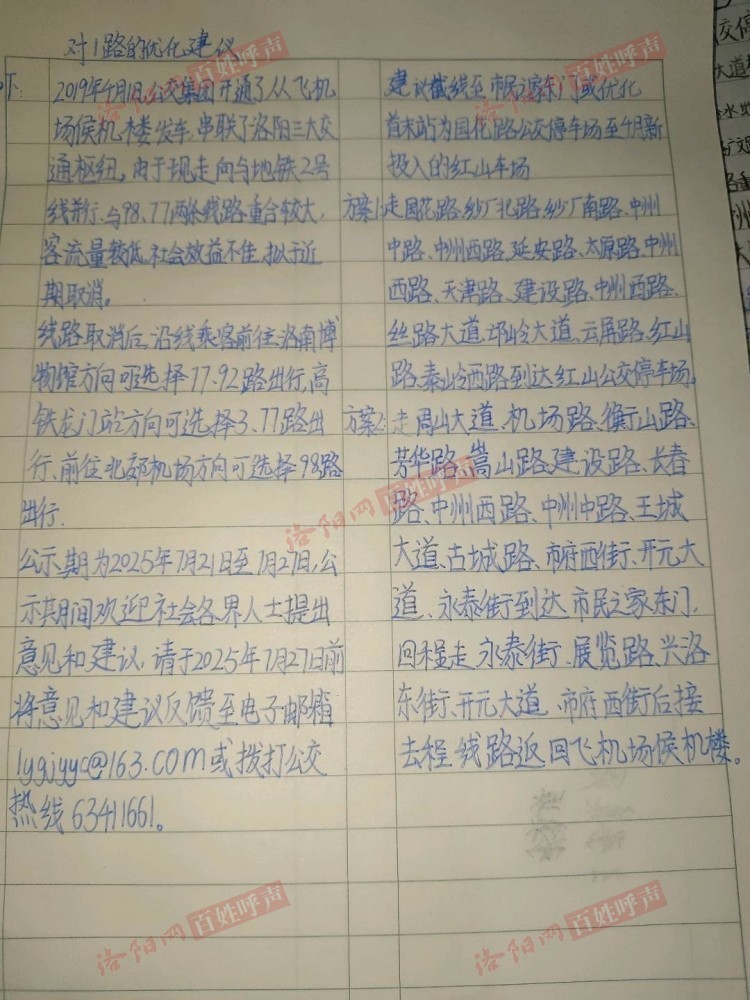 对1路的优化建议
下:
2019年4月1日公交集团开通了从飞机
场候机楼发车,串联了洛阳三大交
通枢纽,由于现走向与地铁2号
线并行,与98、77两条线路重合较大,
客流量较低,社会效益不佳,拟于近
期取消。
线路取消后,沿线乘客前往洛南博
物馆方向可选择77、92路出行,高
铁龙门站方向可选择3、77路出
行、前往北郊机场方向可选择98路
出行.
公示期为2025年7月21日至7月27日,公
示期间欢迎社会各界人士提出
意见和建议,请于2025年7月27日前
将意见和建议反馈至电子邮箱
lygjyyc@163.com或拨打公交
热线63411661。
建议截线至市民之家东门或优化
首末站为国花路公交停车场至4月新
投入的红山车场
方案1:走国花路、纱厂北路、纱厂南路、中州
中路、中州西路、延安路、太原路、中州
西路、天津路、建设路、中州西路、
丝路大道、邙岭大道、云屏路、红山
路、秦岭西路到达红山公交停车场,
方案2:走周山大道、机场路、衡山路、
芳华路、嵩山路、建设路、长春
路、中州西路、中州中路、王城
大道、古城路、市府西街、开元大
道、永泰街到达市民之家东门,
回程走永泰街、展览路、兴洛
东街、开元大道、市府西街后接
去程线路返回飞机场候机楼。
交停
大道
洛阳网 百姓呼声
洛阳网 百姓呼声
洛阳网 百姓呼声
洛阳网 百姓呼声
洛阳网 百姓呼声
洛阳网 百姓呼声